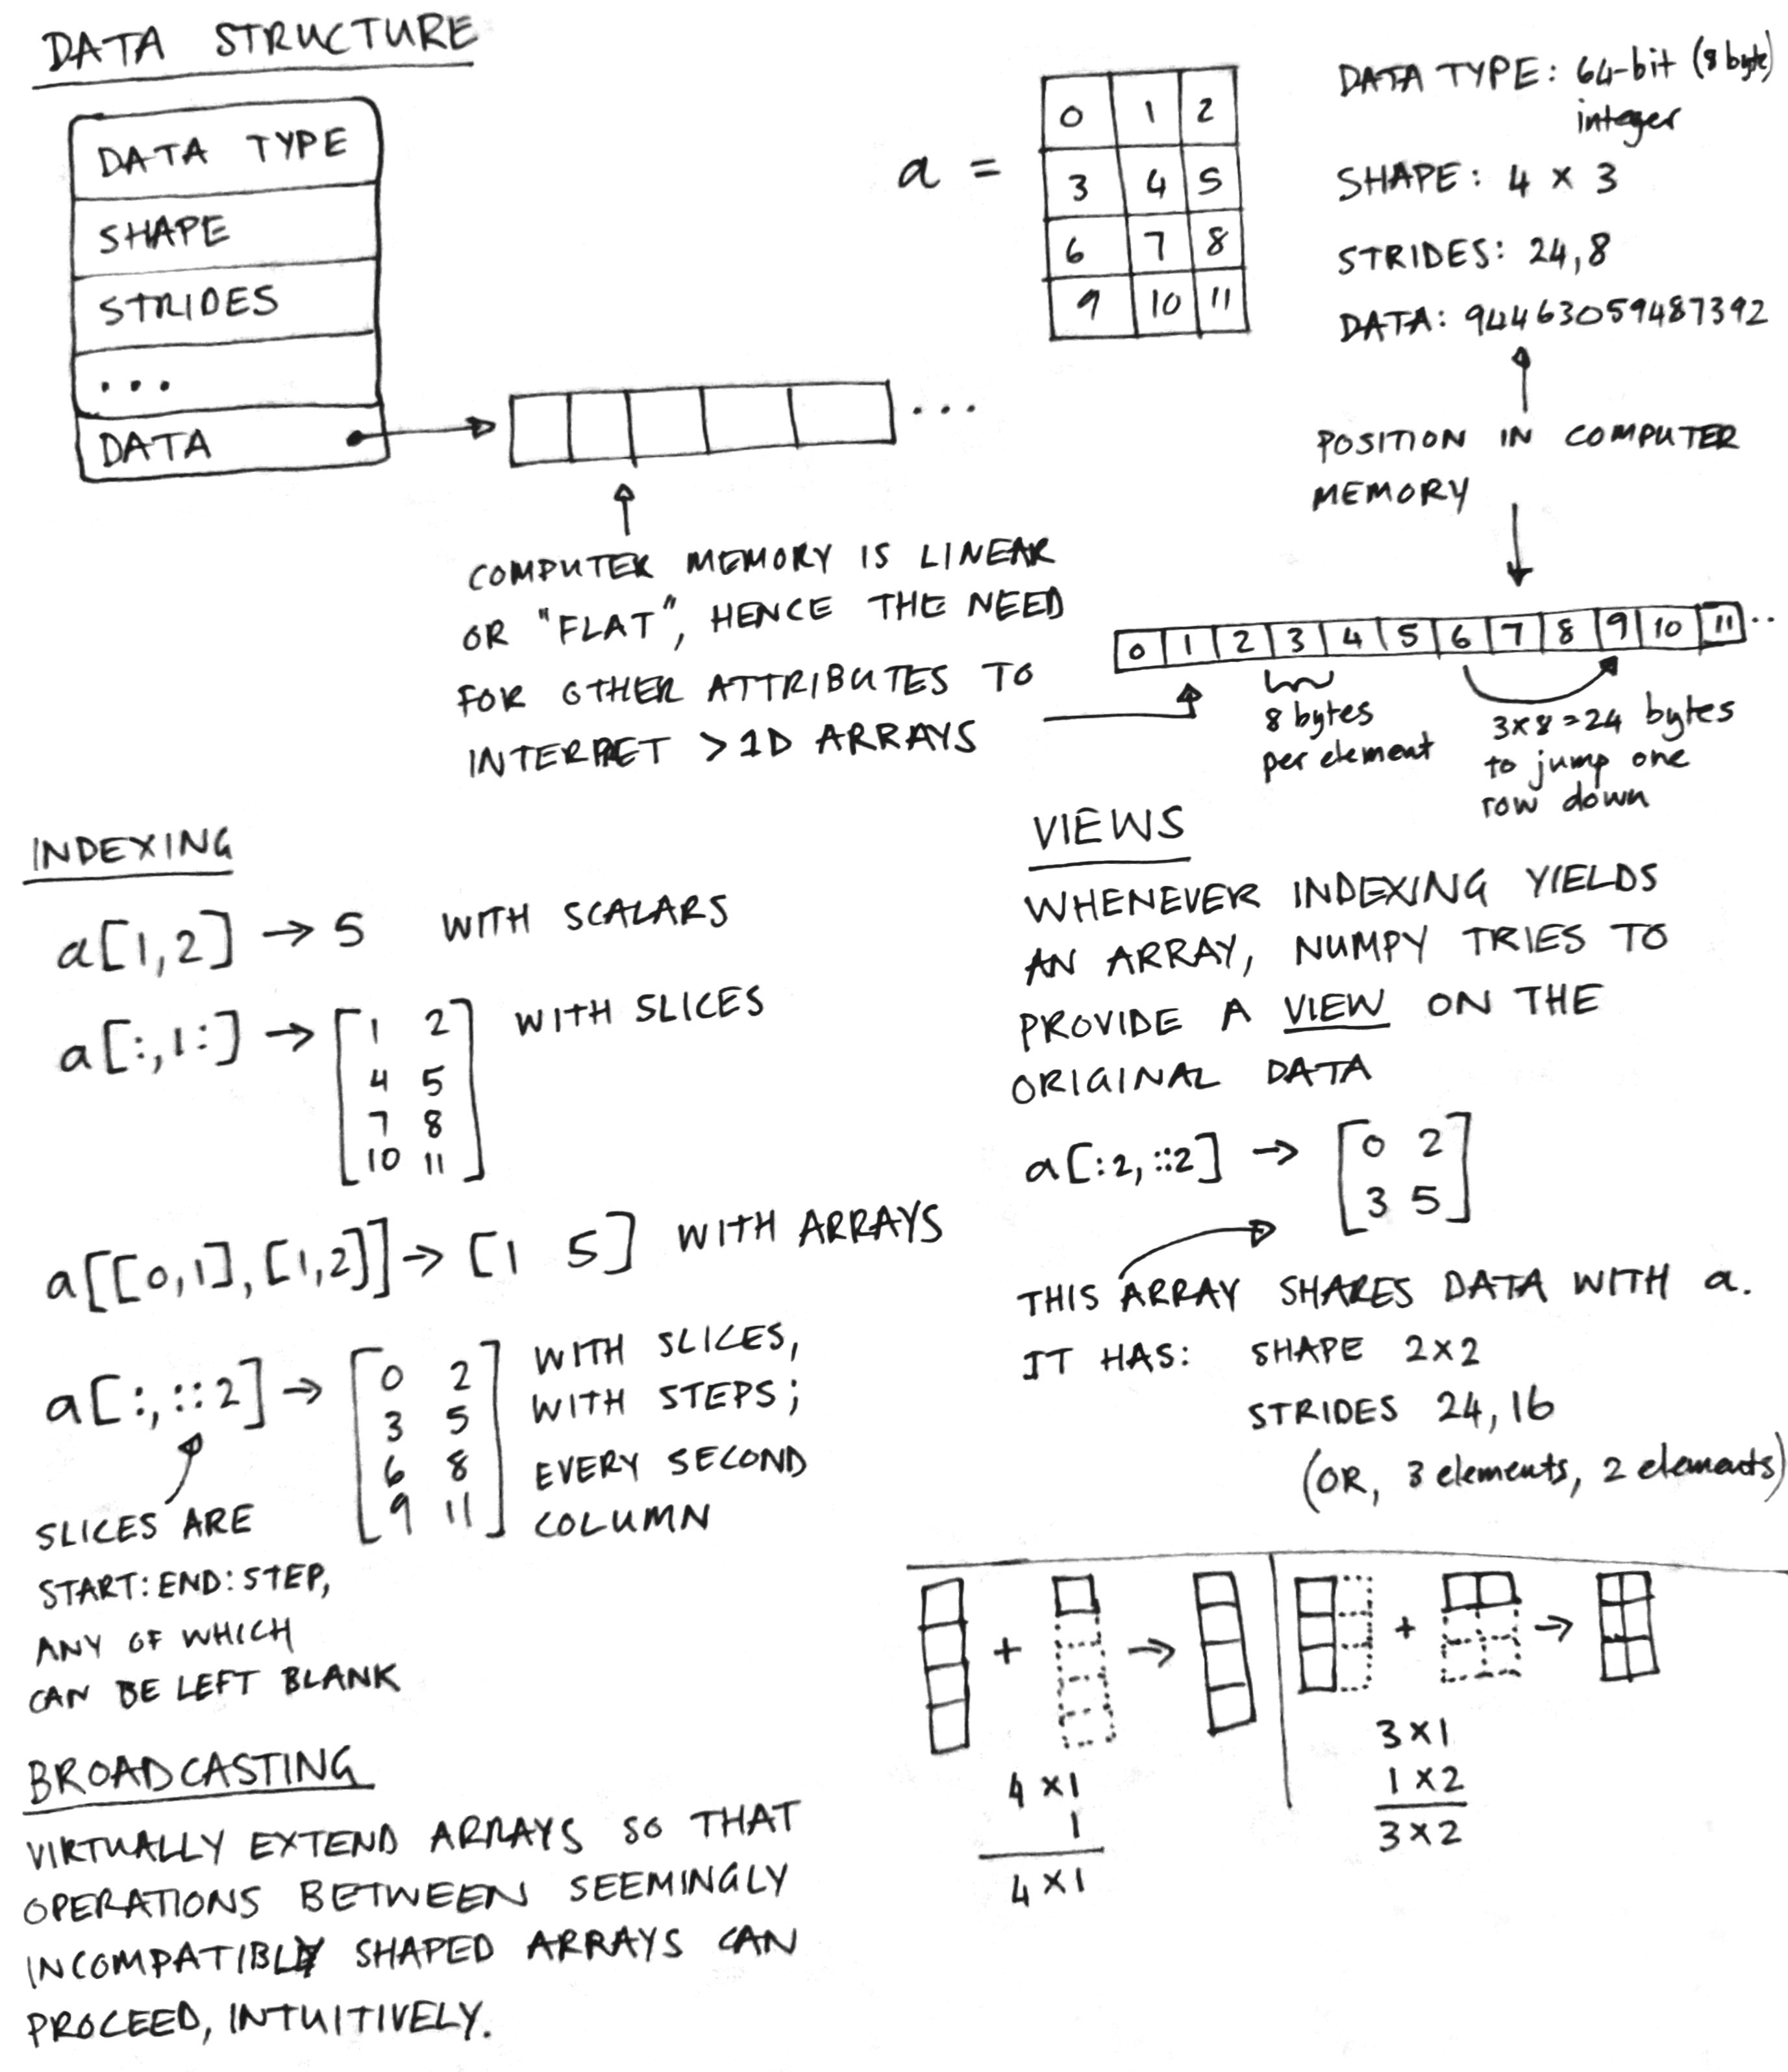 DATA STRUCTURE
DATA TYPE
SHAPE
STRIDES
...
DATA
...
COMPUTER MEMORY IS LINEAR
OR "FLAT", HENCE THE NEED
FOR OTHER ATTRIBUTES TO
INTERPRET >1D ARRAYS
a =
0 1 2
3 4 5
6 7 8
9 10 11
DATA TYPE: 64-bit (8 byte)
integer
SHAPE: 4 × 3
STRIDES: 24,8
DATA: 94463059487392
POSITION IN COMPUTER
MEMORY
0 1 2 3 4 5 6 7 8 9 10 11 ..
8 bytes
per element
3x8=24 bytes
to jump one
row down
INDEXING
a[1,2] → 5 WITH SCALARS
a[:,1:] → [1 2 WITH SLICES
4 5
7 8
10 11]
a[[0,1],[1,2]] → [1 5] WITH ARRAYS
a[:,::2] → [0 2
3 5
6 8
9 11]
WITH SLICES,
WITH STEPS;
EVERY SECOND
COLUMN
SLICES ARE
START:END:STEP,
ANY OF WHICH
CAN BE LEFT BLANK
VIEWS
WHENEVER INDEXING YIELDS
AN ARRAY, NUMPY TRIES TO
PROVIDE A VIEW ON THE
ORIGINAL DATA
a[:2,::2] → [0 2
3 5]
THIS ARRAY SHARES DATA WITH a.
IT HAS: SHAPE 2×2
STRIDES 24,16
(OR, 3 elements, 2 elements)
BROADCASTING
VIRTUALLY EXTEND ARRAYS SO THAT
OPERATIONS BETWEEN SEEMINGLY
INCOMPATIBLY SHAPED ARRAYS CAN
PROCEED, INTUITIVELY.
+ →
4 ×1
1
4 ×1
+ →
3 ×1
1 ×2
3 ×2